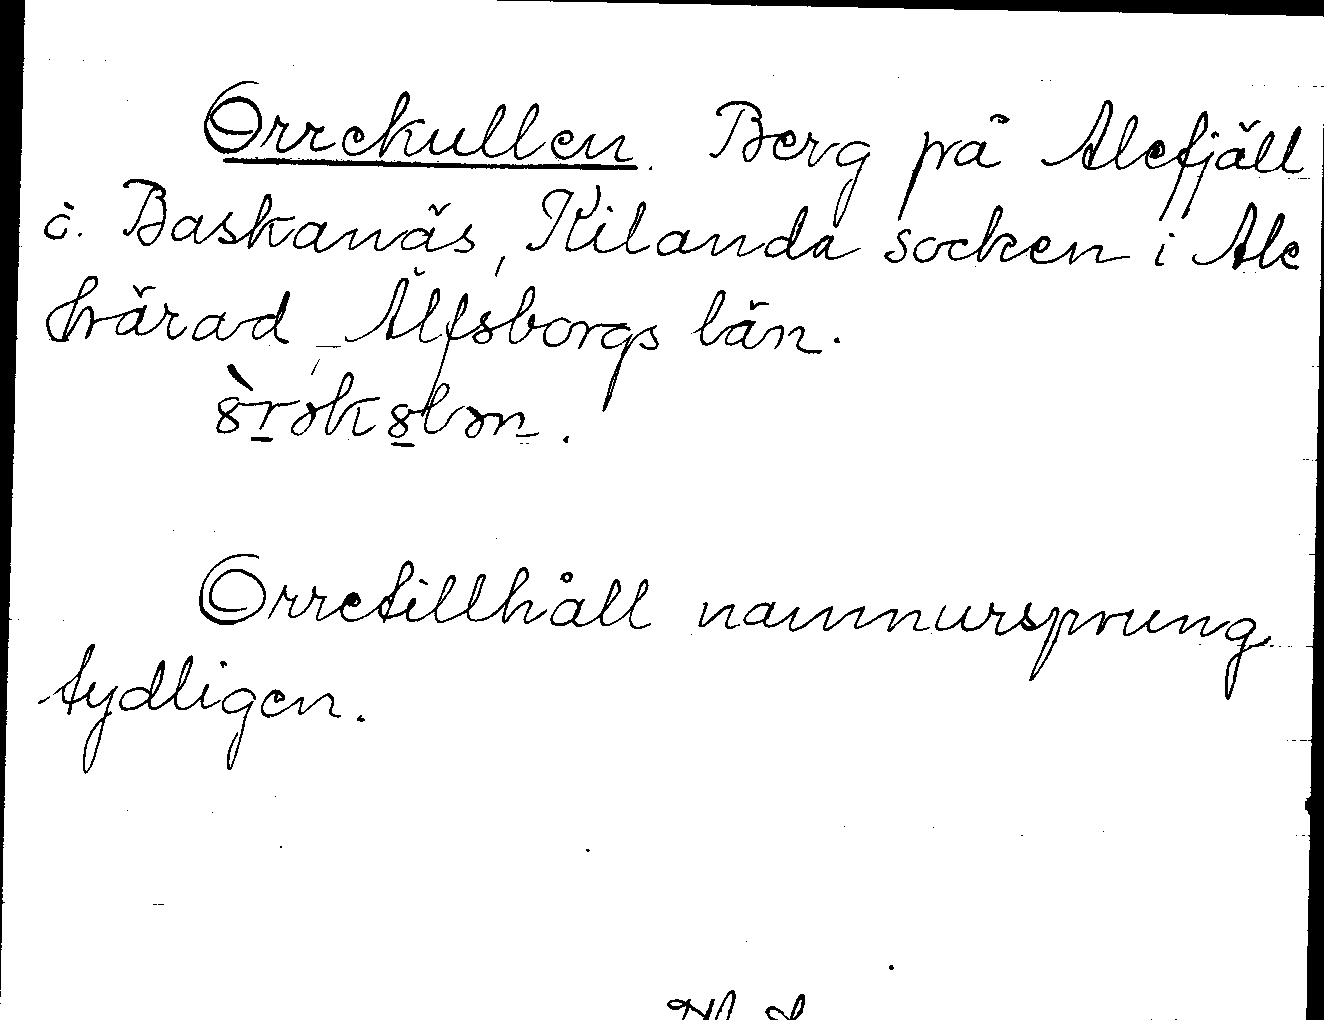 Orrekullen. Berg på Alefjäll
ö. Baskanäs, Kilanda socken i Ale
härad, Älfsborgs län.

Orretillhåll namnursprung
tydligen.